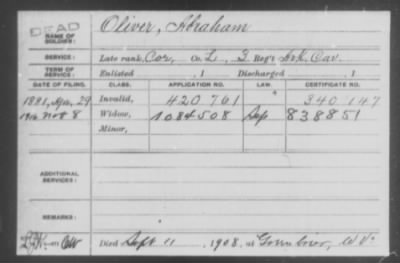 DEAD
NAME OF SOLDIER:
Oliver, Abraham
SERVICE: Late rank, Cor, Co. L, 3 Reg't Ark. Cav.
TERM OF SERVICE: Enlisted , 1 Discharged , 1
DATE OF FILING. CLASS. APPLICATION NO. LAW. CERTIFICATE NO.
1881, Apr. 29 Invalid, 420761 340147
Nov 8 Widow, 1084508 838851
Minor,
ADDITIONAL SERVICES:
REMARKS:
Died Sept 11, 1908, at